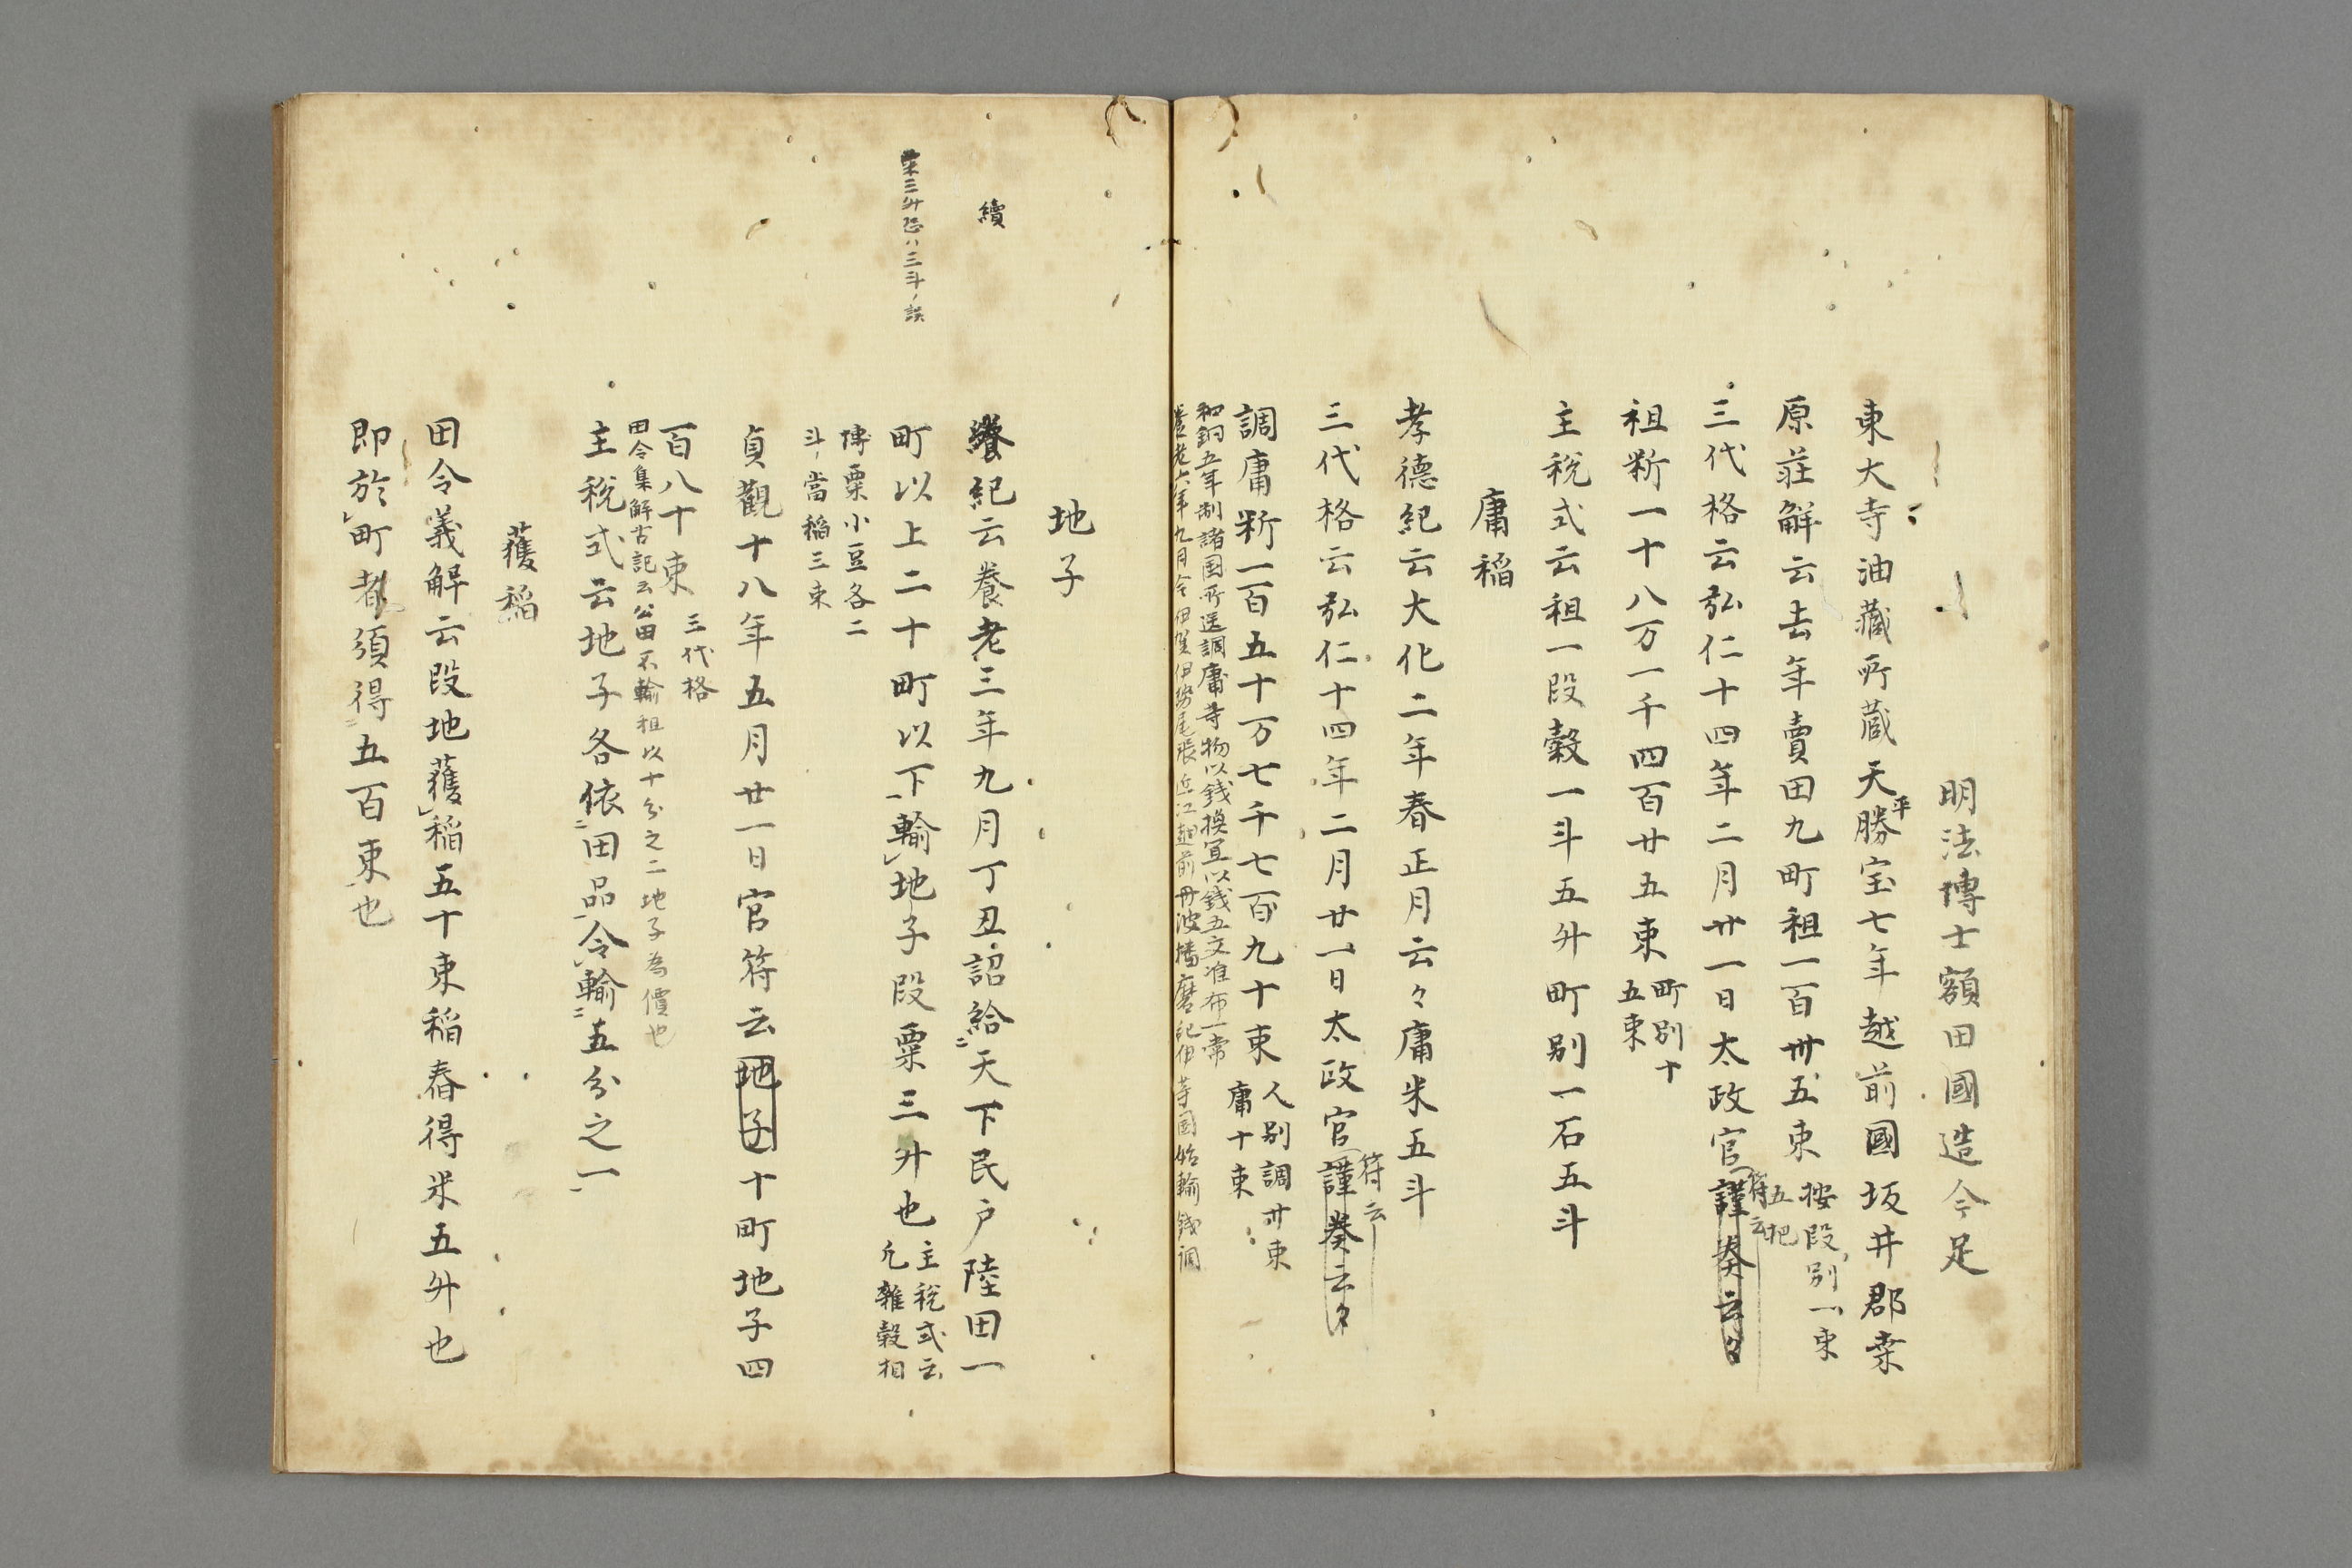 明法博士額田國造今足
東大寺油藏所蔵天平勝宝七年越前國坂井郡桒
原荘解云去年賣田九町租一百卅五束 按段別一束
五把
三代格云弘仁十四年二月廿一日太政官謹奏云々
符云
租析一十八万一千四百廿五束 町別十
五束
主税式云租一段穀一斗五升町別一石五斗
庸稲
孝德紀云大化二年春正月云々庸米五斗
三代格云弘仁十四年二月廿一日太政官謹奏云々
符云
調庸析一百五十万七千七百九十束 人別調卅束
庸十束
和銅五年制諸国所送調庸等物以錢換宜以錢五文准布一常
養老六年九月令伊賀伊勢尾張近江越前丹波播磨紀伊等国始輸錢調
地子
續
紀云養老三年九月丁丑詔給天下民戸陸田一
町以上二十町以下輸地子段粟三升也 主税式云
凡雜穀相
粟三升恐ハ三斗ノ誤
博粟小豆各二
斗當稲三束
貞觀十八年五月廿一日官符云地子十町地子四
百八十束 三代格
田令集解古記云公田不輸租以十分之二地子為價也
主税式云地子各依田品令輸五分之一
獲稲
田令義解云段地獲稲五十束稲舂得米五升也
即於町者須得五百束也